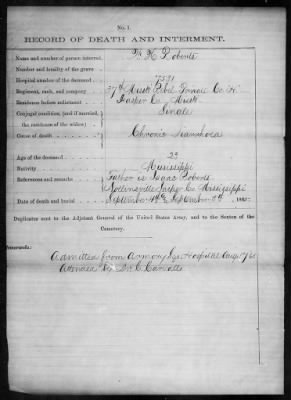 No. 1.
RECORD OF DEATH AND INTERMENT.
Name and number of person interred. H Roberts
Number and locality of the grave
Hospital number of the deceased 7531
Regiment, rank, and company 27th Miss Rebel Co. H.
Residence before enlistment Jasper Co Miss.
Conjugal condition, (and if married, Single
the residence of the widow)
Cause of death Chronic Diarrhoea
Age of the deceased 20
Nativity Mississippi
References and remarks Father is Isaac Roberts
Jasper Co Mississippi
Date of death and burial September 4th September 5th 186
Duplicates sent to the Adjutant General of the United States Army, and to the Sexton of the
Cemetery.
Admitted from Armory Sq. Hospital Aug 17 65
Attended by Dr. C.